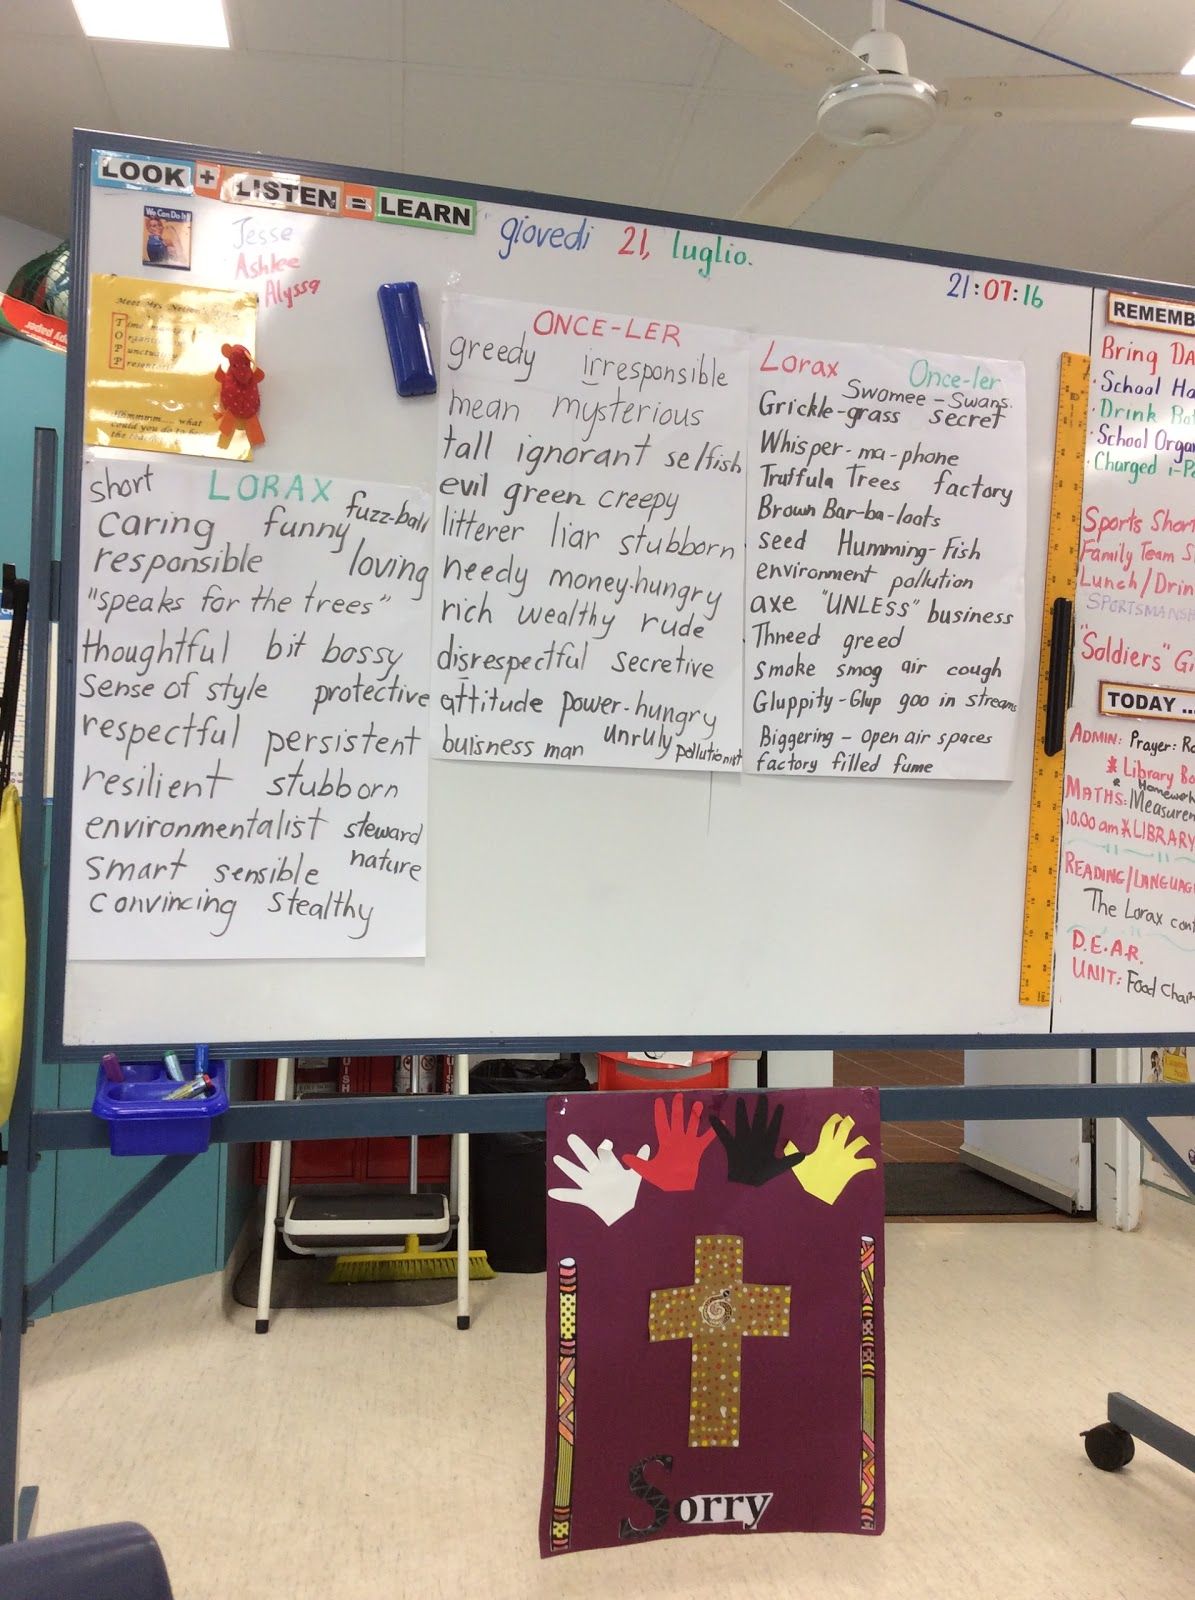 LOOK + LISTEN = LEARN
We Can Do It!
Jesse
Ashlee
Alyssa
giovedi 21, luglio.
21:07:16
Meet Mrs
TOPP
short LORAX fuzz-ball
caring funny
responsible loving
"speaks for the trees"
thoughtful bit bossy
sense of style protective
respectful persistent
resilient stubborn
environmentalist steward
smart sensible nature
convincing stealthy
ONCE-LER
greedy irresponsible
mean mysterious
tall ignorant selfish
evil green creepy
litterer liar stubborn
needy money-hungry
rich wealthy rude
disrespectful secretive
attitude power-hungry
buisness man unruly pollutionist
Lorax Once-ler
Swomee-Swans.
Grickle-grass secret
Whisper-ma-phone
Truffula Trees factory
Brown Bar-ba-loots
seed Humming-Fish
environment pollution
axe "UNLESS" business
Thneed greed
smoke smog air cough
Gluppity-Glup goo in streams
Biggering - open air spaces
factory filled fume
REMEMB
Bring DA
School Ha
Drink Bot
School Organ
Charged i-P
Sports Shor
Family Team S
Lunch/Drin
SPORTSMANSH
"Soldiers" G
TODAY ...
ADMIN: Prayer: Ro
* Library Bo
* Homework
MATHS: Measuren
10.00am * LIBRARY
READING/LANGUAG
The Lorax cont
D.E.A.R.
UNIT: Food Chai
Sorry